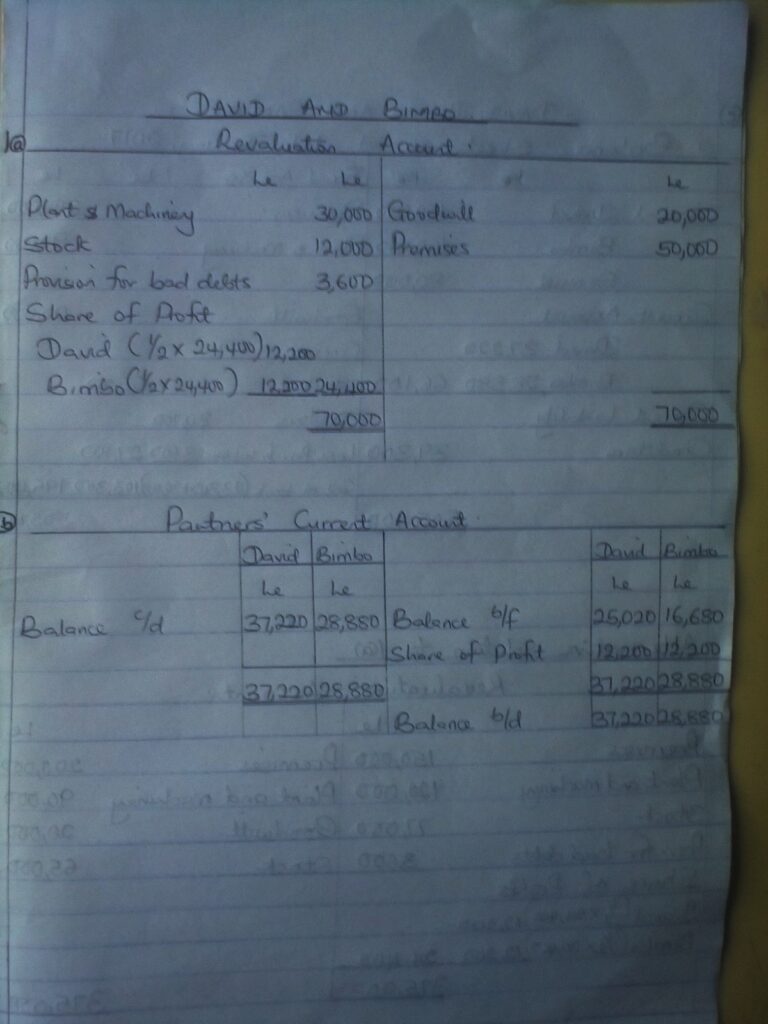 DAVID AND BIMBO
1a Revaluation Account.
Le Le Le
Plant & Machinery 30,000 Goodwill 20,000
Stock 12,000 Premises 50,000
Provision for bad debts 3,600
Share of Profit
David (1/2 x 24,400) 12,200
Bimbo (1/2 x 24,400) 12,200 24,400
70,000 70,000
b Partners' Current Account.
David Bimbo David Bimbo
Le Le Le Le
Balance c/d 37,220 28,880 Balance b/f 25,020 16,680
Share of Profit 12,200 12,200
37,220 28,880 37,220 28,880
Balance b/d 37,220 28,880